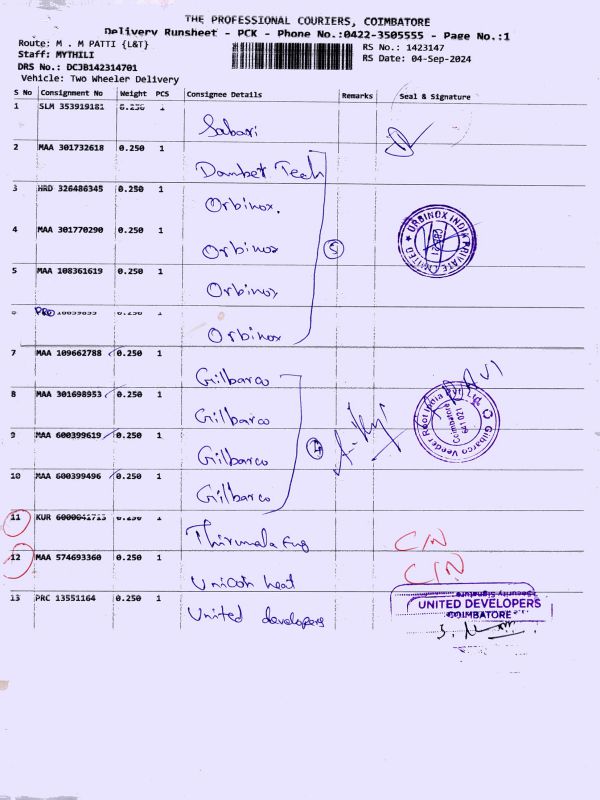 THE PROFESSIONAL COURIERS, COIMBATORE
Delivery Runsheet - PCK - Phone No.:0422-3505555 - Page No.:1
Route: M . M PATTI {L&T}
RS No.: 1423147
Staff: MYTHILI
RS Date: 04-Sep-2024
DRS No.: DCJB142314701
Vehicle: Two Wheeler Delivery
S No Consignment No Weight PCS Consignee Details Remarks Seal & Signature
1 SLM 353919181 0.250 1 Sabari
2 MAA 301732618 0.250 1 Dambet Tech
3 HRD 326486345 0.250 1 Orbinox.
4 MAA 301770290 0.250 1 Orbinox
5 MAA 108361619 0.250 1 Orbinox
5
ORBINOX INDIA PRIVATE LIMITED
6 PRO 0.250 1 Orbinox
7 MAA 109662788 0.250 1 Gilbarco
8 MAA 301698953 0.250 1 Gilbarco
9 MAA 600399619 0.250 1 Gilbarco
4
Gilbarco Veeder Root India Pvt Ltd.
Coimbatore
641 021
10 MAA 600399496 0.250 1 Gilbarco
11 KUR 0.250 1 Thirumala Eng C/N
12 MAA 574693360 0.250 1 Unicon heat C/N
13 PRC 13551164 0.250 1 United developers
Security Signature
UNITED DEVELOPERS
COIMBATORE